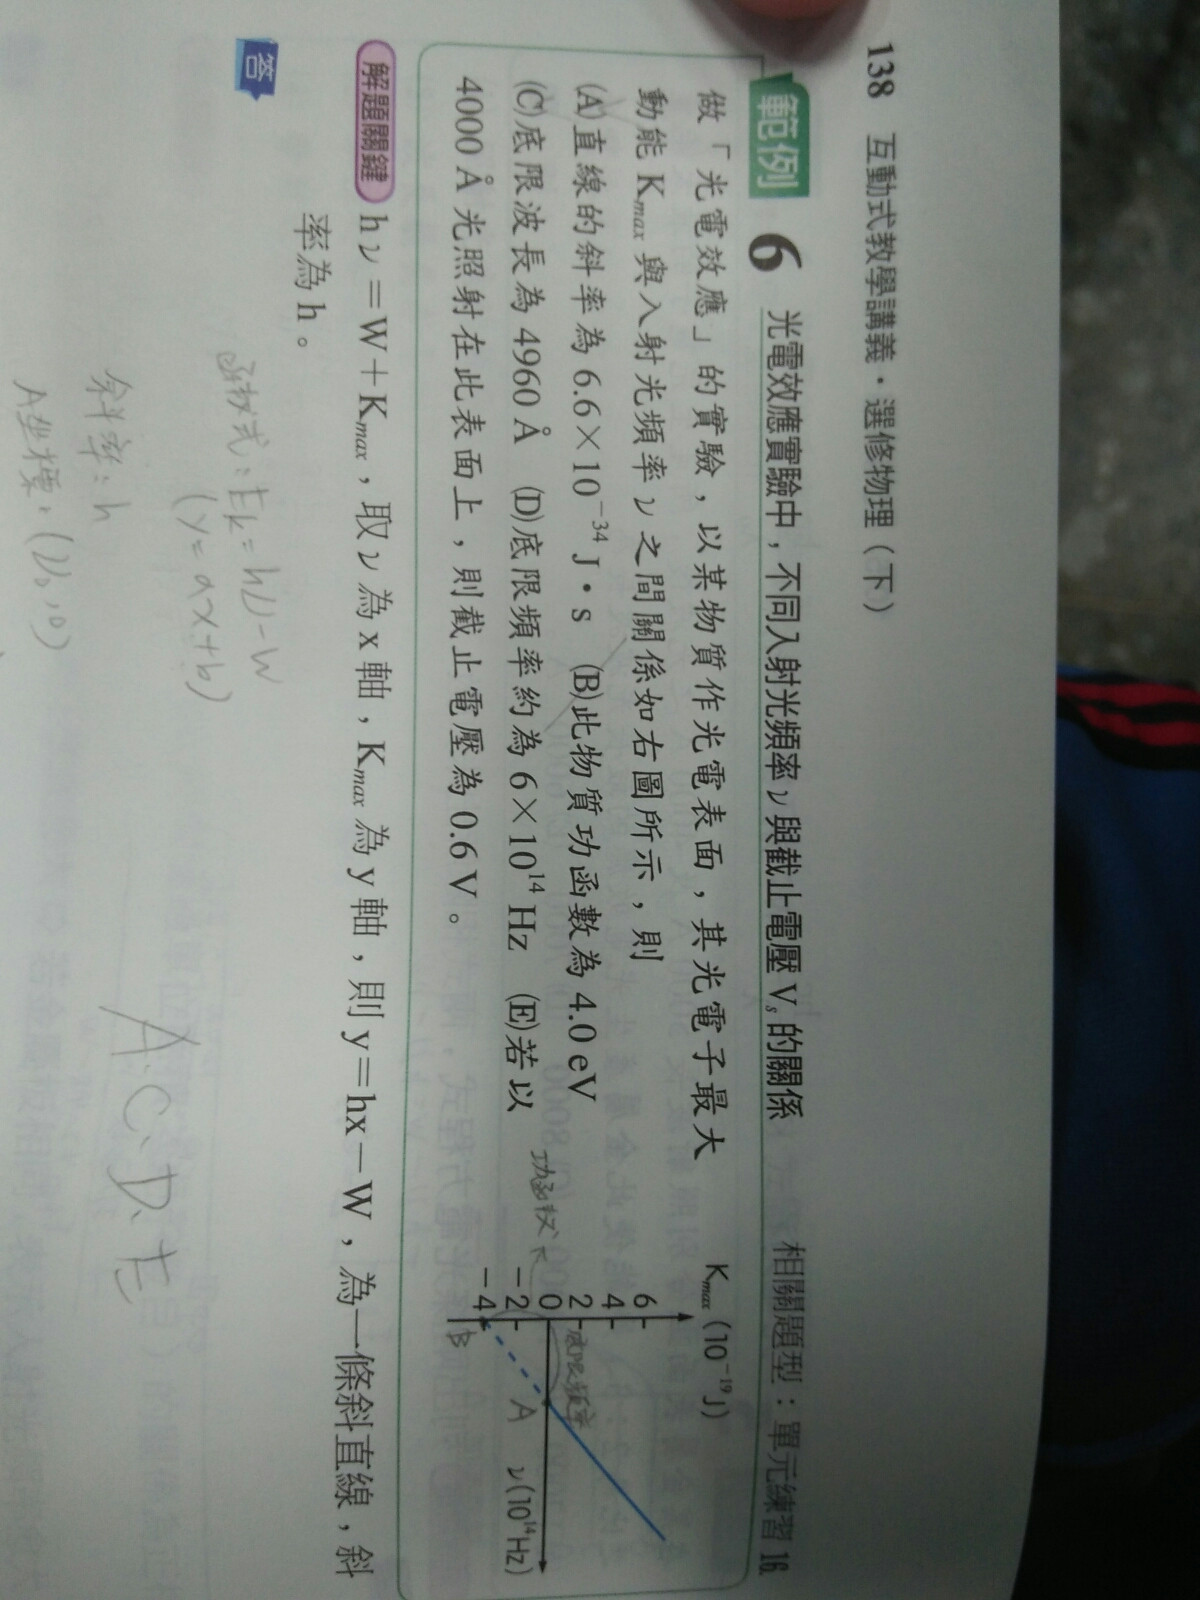 138 互動式教學講義・選修物理(下)
範例 6 光電效應實驗中,不同入射光頻率ν與截止電壓 Vs 的關係 相關題型:單元練習 16.
做「光電效應」的實驗,以某物質作光電表面,其光電子最大
動能 Kmax 與入射光頻率ν之間關係如右圖所示,則
(A)直線的斜率為 6.6×10⁻³⁴ J・s (B)此物質功函數為 4.0 eV
(C)底限波長為 4960 Å (D)底限頻率約為 6×10¹⁴ Hz (E)若以
4000 Å 光照射在此表面上,則截止電壓為 0.6 V。
Kmax (10⁻¹⁹J)
6
4
2
0
-2
-4
底限頻率
A
B
ν(10¹⁴Hz)
解題關鍵 hν=W+Kmax,取ν為 x 軸,Kmax 為 y 軸,則 y=hx-W,為一條斜直線,斜
率為 h。
答
函數式:Ek=hν-W
(y=ax+b)
斜率:h
A坐標:(ν₀,0)
A.C.D.E